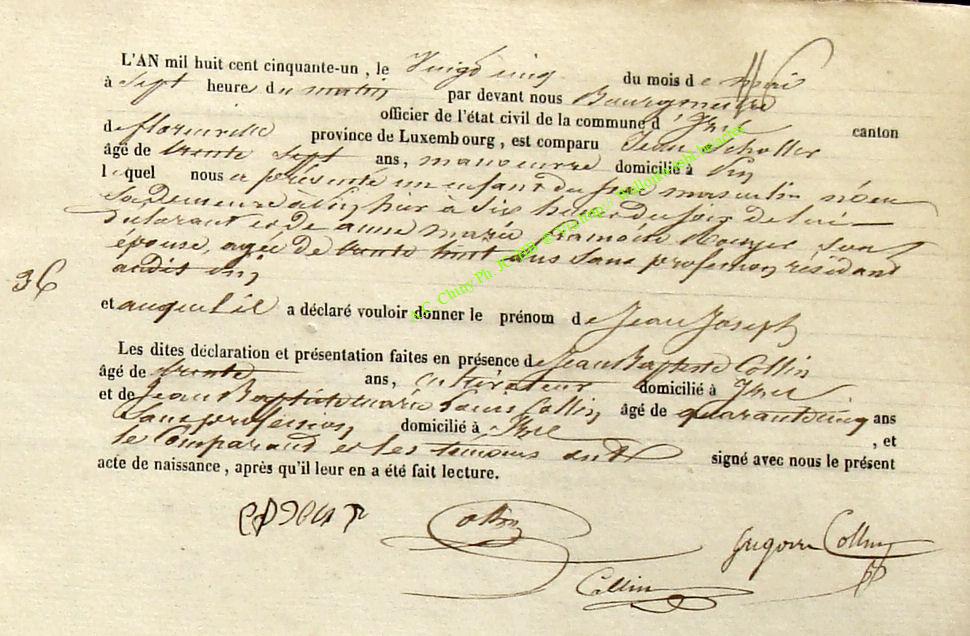 L'AN mil huit cent cinquante-un, le Vingt cinq du mois de Mai
à sept heure du matin par devant nous Bourgmestre
officier de l'état civil de la commune d'Izel canton
de florenville province de Luxembourg, est comparu Jean
âgé de trente sept ans, manoeuvre domicilié à
lequel nous a présenté un enfant du sexe masculin né en
sa Demeure à hier à six heures du soir de lui
déclarant et de anne marie son
épouse, agée de trente huit ans sans profession résidant
audit
36
et auquel il a déclaré vouloir donner le prénom de Jean Joseph
Les dites déclaration et présentation faites en présence de Jean Baptiste Collin
âgé de trente ans, cultivateur domicilié à Izel
et de Jean Baptiste marie Louis Collin âgé de quarante cinq ans
sans profession domicilié à Izel , et
le Comparant et les témoins ont signé avec nous le présent
acte de naissance, après qu'il leur en a été fait lecture.
Collin
Collin
Collin